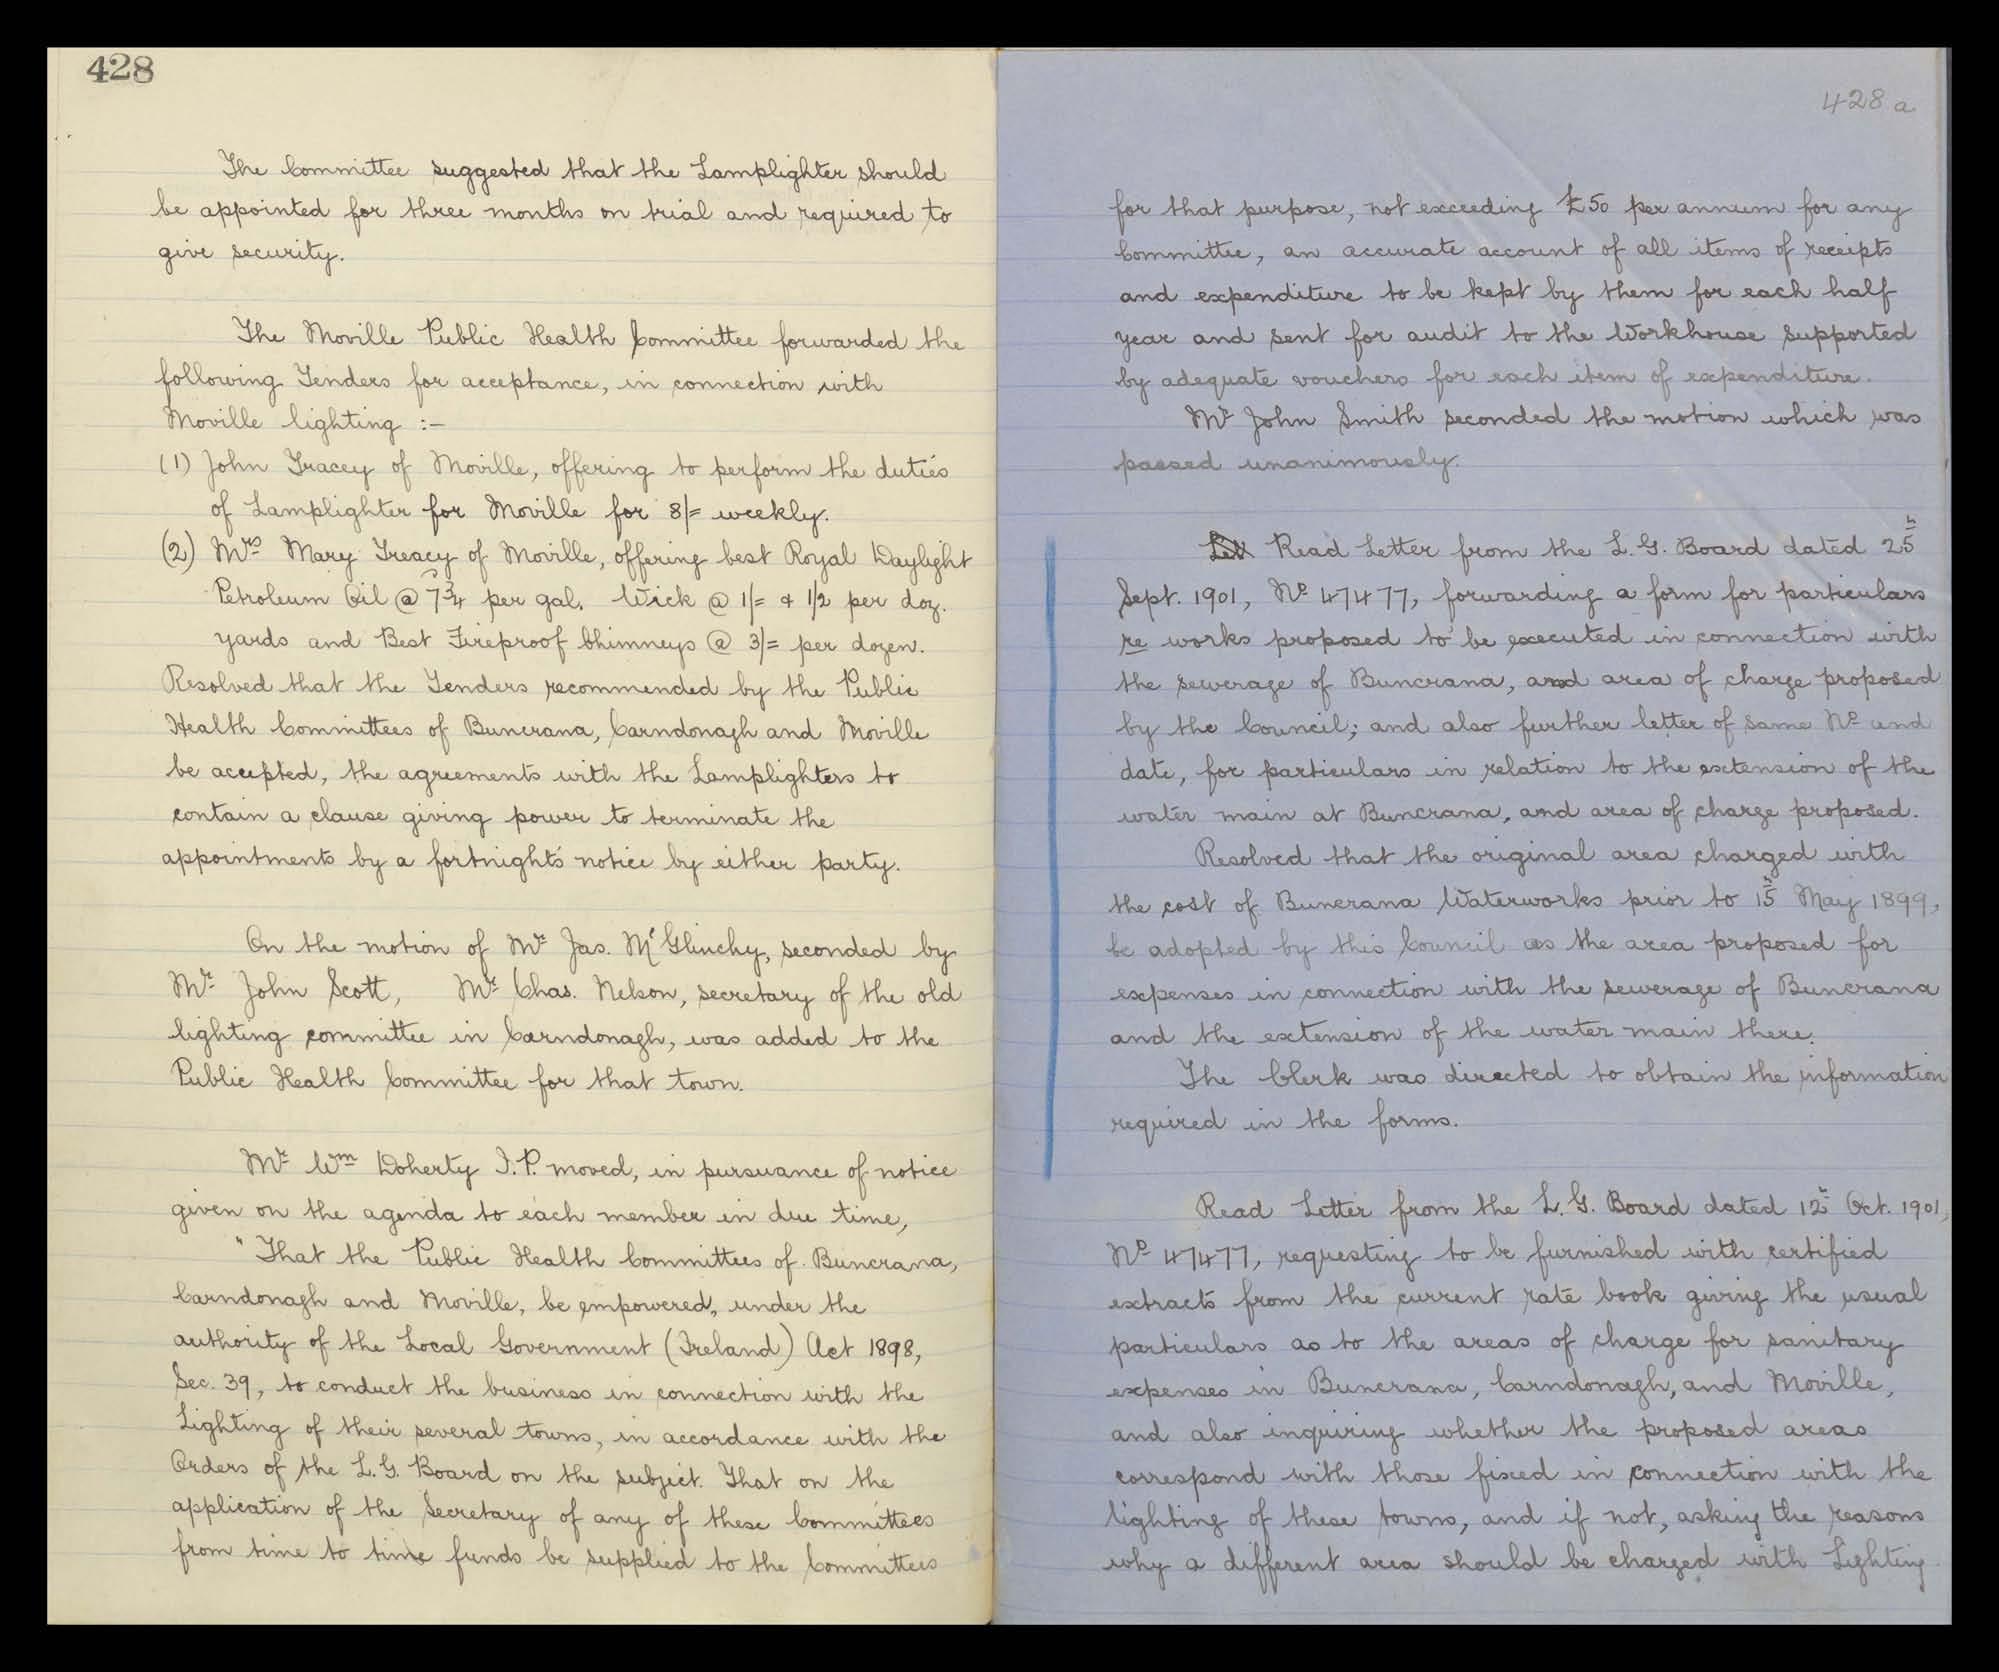 428
The Committee suggested that the Lamplighter should
be appointed for three months on trial and required to
give security.
The Moville Public Health Committee forwarded the
following Tenders for acceptance, in connection with
Moville lighting :-
(1) John Tracey of Moville, offering to perform the duties
of Lamplighter for Moville for 8/= weekly.
(2) Mrs Mary Treacy of Moville, offering best Royal Daylight
Petroleum Oil @ 7¾ per gal. Wick @ 1/= & 1/2 per doz.
yards and Best Fireproof Chimneys @ 3/= per dozen.
Resolved that the Tenders recommended by the Public
Health Committees of Buncrana, Carndonagh and Moville
be accepted, the agreements with the Lamplighters to
contain a clause giving power to terminate the
appointments by a fortnight's notice by either party.
On the motion of Mr Jas. McGlinchy, seconded by
Mr John Scott, Mr Chas. Nelson, secretary of the old
lighting committee in Carndonagh, was added to the
Public Health Committee for that town.
Mr Wm Doherty J.P. moved, in pursuance of notice
given on the agenda to each member in due time,
"That the Public Health Committees of Buncrana,
Carndonagh and Moville, be empowered, under the
authority of the Local Government (Ireland) Act 1898,
Sec. 39, to conduct the business in connection with the
Lighting of their several towns, in accordance with the
Orders of the L.G. Board on the subject. That on the
application of the Secretary of any of these Committees
from time to time funds be supplied to the Committees
428 a
for that purpose, not exceeding £50 per annum for any
Committee, an accurate account of all items of receipts
and expenditure to be kept by them for each half
year and sent for audit to the Workhouse supported
by adequate vouchers for each item of expenditure.
Mr John Smith seconded the motion which was
passed unanimously.
Let Read Letter from the L.G. Board dated 25h
Sept. 1901, No 47477, forwarding a form for particulars
re works proposed to be executed in connection with
the sewerage of Buncrana, and area of charge proposed
by the Council; and also further letter of same No and
date, for particulars in relation to the extension of the
water main at Buncrana, and area of charge proposed.
Resolved that the original area charged with
the cost of Buncrana Waterworks prior to 15h May 1899,
be adopted by this Council as the area proposed for
expenses in connection with the sewerage of Buncrana
and the extension of the water main there.
The Clerk was directed to obtain the information
required in the forms.
Read Letter from the L.G. Board dated 12h Oct. 1901,
No 47477, requesting to be furnished with certified
extracts from the current rate book giving the usual
particulars as to the areas of charge for sanitary
expenses in Buncrana, Carndonagh, and Moville,
and also inquiring whether the proposed areas
correspond with those fixed in connection with the
lighting of these towns, and if not, asking the reasons
why a different area should be charged with Lighting